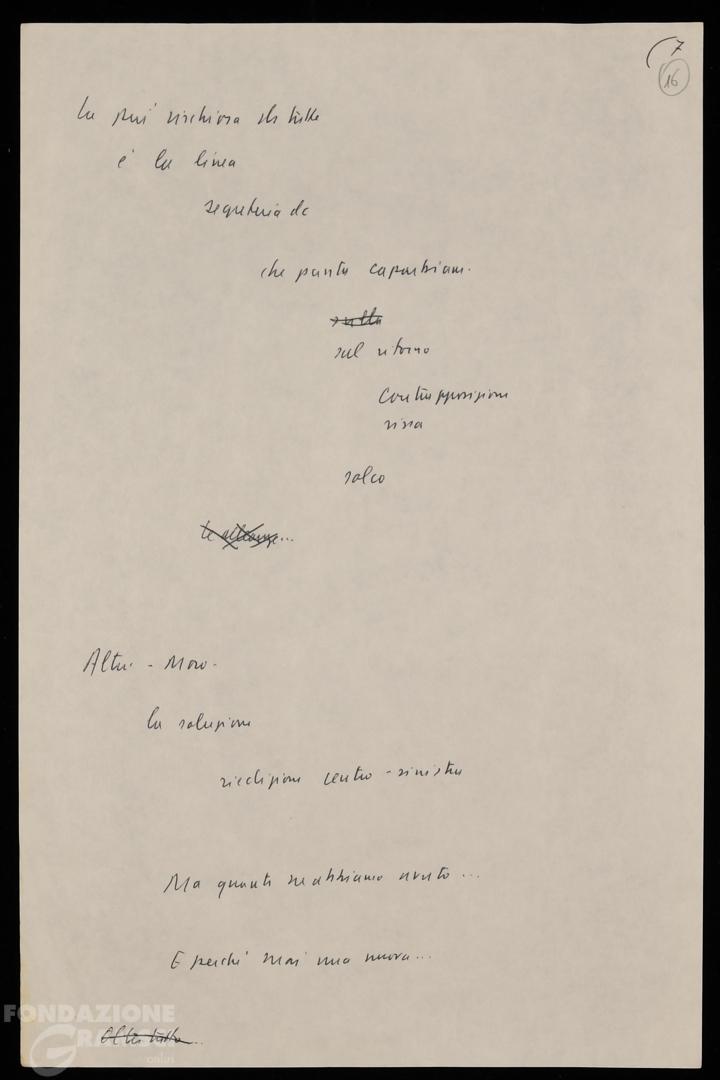 7
16
la più rischiosa di tutte
è la linea
segreteria dc
che punta caparbiam.
sulla
sul ritorno
contrapposizione
rissa
solco
le alleanze...
Altri - Moro -
la soluzione
riedizione centro-sinistra
Ma quanti ne abbiamo avuto ...
E perché mai una nuova...
Oltre tutto...
FONDAZIONE
GRAMSCI
onlus